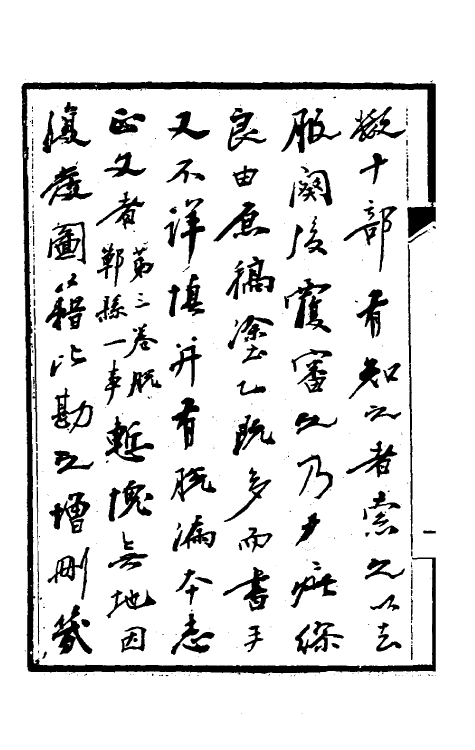 數十部有知之者索之以去
服闋後覆審之乃多疵繆
良由原稿塗乙既多而書手
又不詳慎并有脫漏本志
正文者第三卷脫鄞縣一事慙愧無地因
復發圖籍比勘之增刪幾